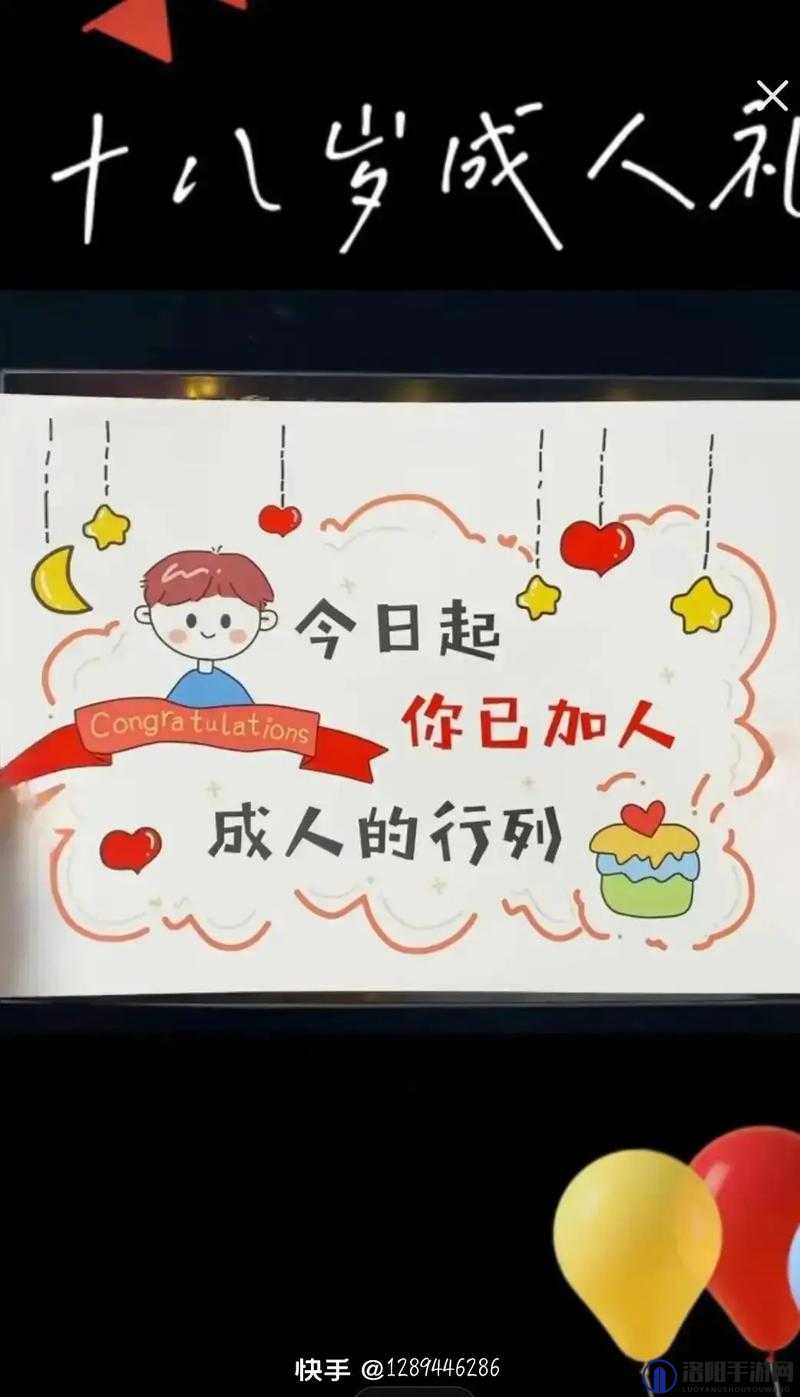 十八岁成人礼
今日起
Congratulations
你已加人
成人的行列
快手 @1289446286
洛阳手游网
LUOYANGSHOUYOUWANG